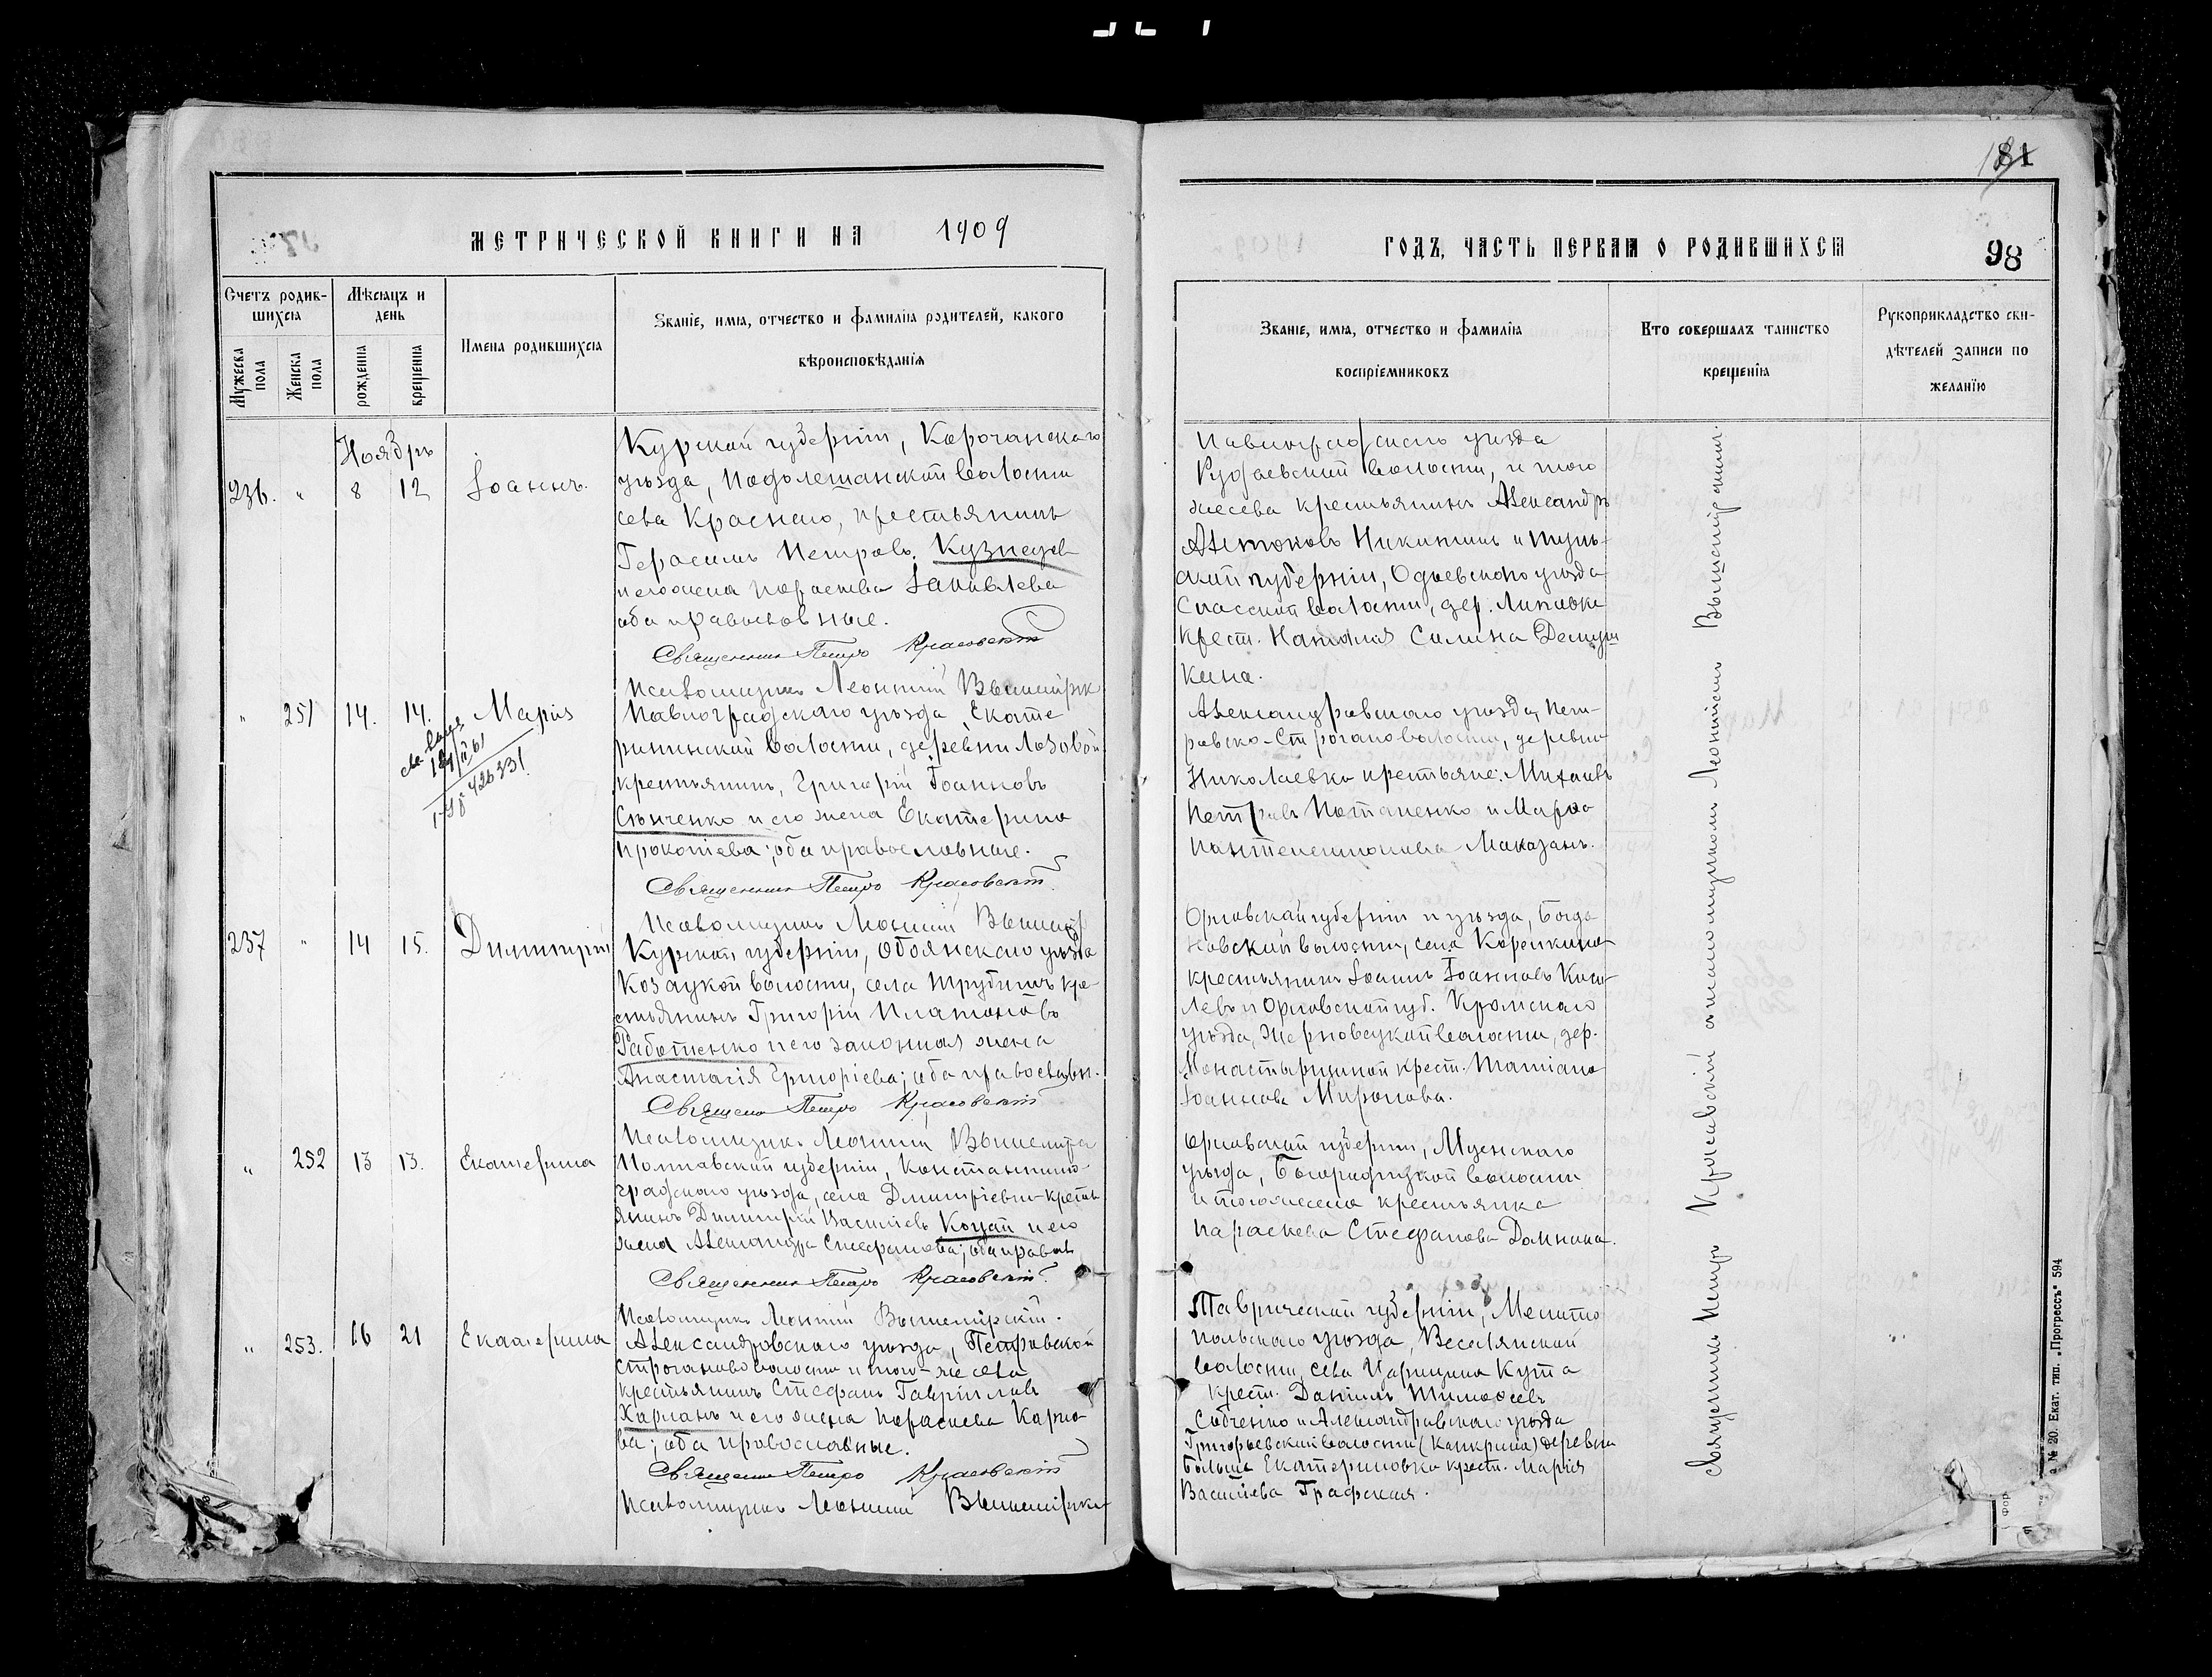 181
МЕТРИЧЕСКОЙ КНИГИ НА 1909
ГОДЪ, ЧАСТЬ ПЕРВАЯ О РОДИВШИХСЯ
98
Счетъ родив-
шихся
Мужеска пола
Женска пола
Мѣсяцъ и
день
рожденія
крещенія
Имена родившихся
Званіе, имя, отчество и фамилія родителей, какого
вѣроисповѣданія
Званіе, имя, отчество и фамилія
воспріемниковъ
Кто совершалъ таинство
крещенія
Рукоприкладство сви-
дѣтелей записи по
желанію
Ноябрь
236. " 8 12 Іоаннъ.
Курской губерніи, Корочанскаго
уѣзда, Подолешанской волости
села Краснаго, крестьянинъ
Герасимъ Петровъ Кузнецов
и его жена Параскева Іаковлева
оба православные.
Священникъ Петръ Красовскій
Псаломщикъ Леонтій Вышемірск
Павлоградскаго уѣзда
волости, и того
жесела крестьянинъ Александръ
Никитинъ и Туль-
ской губерніи, Одоевскаго уѣзда
Спасской волости, дер. Липовки
крест. Наталія
кина.
" 251 14. 14. Марія
св-во выд
1-ЯЮ 426331.
Павлоградскаго уѣзда Екате
рининской волости, деревни Лозовой
крестьянинъ, Григорій Іоанновъ
и его жена Екатерина
Прокопіева; оба православные.
Священникъ Петръ Красовскій
Псаломщикъ Леонтій Вышемір
Александровскаго уѣзда, Пет-
ровско-Строганов волости, деревни
Николаевки крестьяне: Михаилъ
Петровъ Потапенко и Марѳа
Пантелеимонова
237 " 14 15. Димитрій
Курской губерніи, Обоянскаго уѣзда
Козацкой волости, села кре-
стьянинъ Григорій Платоновъ
Работенко и его законная жена
Анастасія Григоріева; оба православн.
Священ Петръ Красовскій
Псаломщикъ Леонтій Вышемірск
Орловской губерніи и уѣзда, Богда
новской волости, села
крестьянинъ Іоаннъ Іоанновъ
левъ и Орловской губ. Кромскаго
уѣзда, волости, дер.
крест. Татіана
Іоаннова Миронова.
" 252 13 13. Екатерина
Полтавской губерніи, Константино-
градскаго уѣзда, села Димитріевки крестья
янинъ Димитрій Василіевъ Коцай и его
жена Александра Стефанова; оба правосл
Священникъ Петръ Красовскій
Псаломщикъ Леонтій Вышемірскій.
Орловской губерніи, Мценскаго
уѣзда, волости
и того же села крестьянка
Параскева Стефанова Домнина.
" 253. 16 21 Екатерина
Александровскаго уѣзда, Петровской
Строганово волости и того-же села
крестьянинъ Стефанъ Гавріиловъ
Харланъ и его жена Параскева Карпо
ва; оба православные.
Священникъ Петръ Красовскій
Псаломщикъ Леонтій Вышемірск
Таврической губерніи, Мелито
польскаго уѣзда, Веселянской
волости, села Царицына Кута
крест. Даніилъ Тимоѳеевъ
Собченко и Александровскаго уѣзда
Григорьевской волости (Канкрина) деревни
Больше Екатериновка крест. Марія
Василіева Графская.
Священникъ Петръ Красовскій съ псаломщикомъ Леонтіемъ Вышемірскимъ.
№ 20. Екат. тип. „Прогрессъ" 594